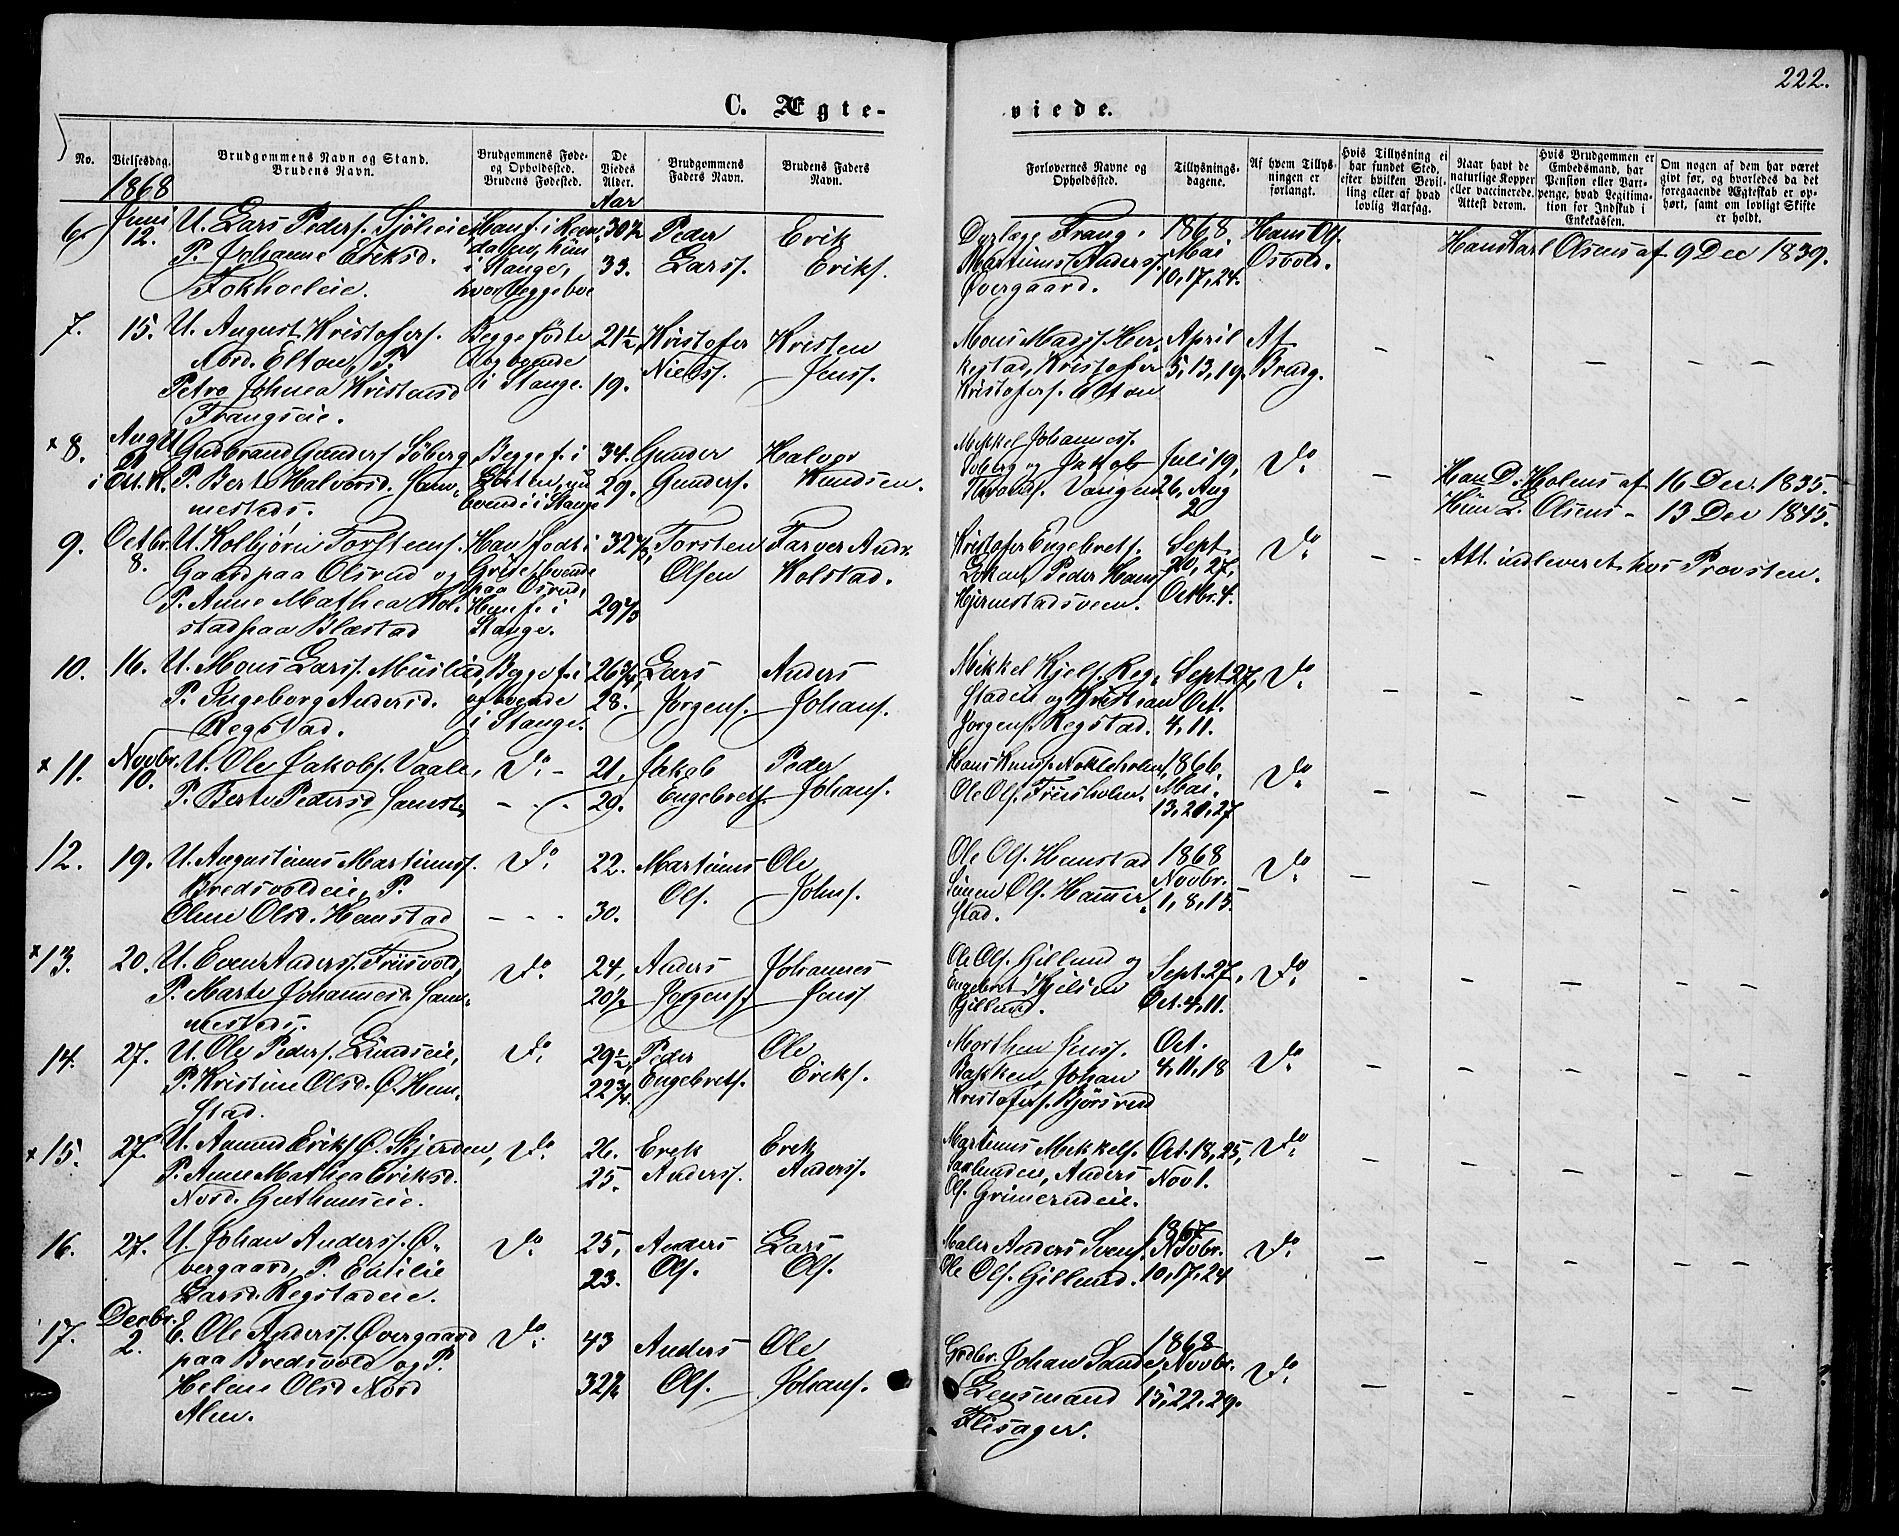 222.
C. Ægte-
viede.
No.
Vielsesdag.
Brudgommens Navn og Stand.
Brudens Navn.
Brudgommens Føde-
og Opholdssted.
Brudens Fødested.
De
Viedes
Alder.
Brudgommens
Faders Navn.
Brudens Faders
Navn.
Forlovernes Navne og
Opholdssted.
Tillysnings-
dagene.
Af hvem Tillys-
ningen er
forlangt.
Hvis Tillysning ei
har fundet Sted,
efter hvilken Bevil-
ling eller af hvad
lovlig Aarsag.
Naar havt de
naturlige Kopper
eller vaccinerede.
Attest derom.
Hvis Brudgommen er
Embedsmand, har
Pension eller Vart-
penge, hvad Legitima-
tion for Indskud i
Enkekassen.
Om nogen af dem har været
givt før, og hvorledes da det
foregaaende Ægteskab er op-
hørt, samt om lovligt Skifte
er holdt.
1868
Aar
6. Juni 12.
U. Lars Peders. Sjølieie
P. Johanne Eriksd.
i Stange,
33.
Peder
Lars.
Erik
Eriks.
Martinus Anders.
Øvergaard.
1868
Mai
10, 17, 24.
Hans Ols.
Osvold.
Han Karl Olsens af 9 Dec 1839.
7. 15.
U. August Kristofers.
Nord. Elton, P.
Petra Johnea Kristensd
Frangseie.
Begge fødte
i Stange.
21½,
19.
Kristofer
Niels.
Kristen
Jens.
Mons Mads. Her-
kestad, Kristofer
Kristofers. Elton
April
5, 13, 19.
Af
Brudg.
x 8. Aug
i Ott. K.
U. Gudbrand Gunders. Soberg
P. Berte Halvorsd. Sam-
mesteds.
Begge f. i
Løiten, nu
boende i Stange
34.
29.
Gunder
Gunders.
Halvor
Knudsen.
Mikkel Johannes.
Soberg og Jakob
Juli 19,
26, Aug
2
Do
Han D. Holens af 16 Dec. 1835.
Hun L. Olsens - 13 Dec 1845.
9. Octbr. 8.
U. Kolbjørn Torstens.
Gaard paa Olsrud og
P. Anne Mathea Kol-
stad paa Blæstad
Han født i
Hun f. i
Stange.
Torsten
Olsen
Farver Andr.
Kolstad.
Kristofer Engebrets.
Løken, Peder Hans.
Hjermstadsveen.
Sept
20, 27,
Octbr. 4.
Do
Att. indleveret hos Provsten.
10. 16.
U. Mons Lars. Muslied,
P. Ingeborg Andersd.
Regstad.
Begge f. i
og boende
i Stange.
26¾,
28.
Lars
Jørgens.
Anders
Johans.
Mikkel Kjels. Reg-
stadeie og Kristian
Jørgens. Regstad.
Sept 27,
Oct.
4, 11.
Do
x 11. Novbr. 10.
U. Ole Jakobs. Vaale,
P. Berte Pedersd. Samst.
Do
21,
29.
Jakob
Engebrets.
Peder
Johans.
Hans Knuds. Nokleholm,
Ole Ols. Friisholm.
1866,
Mai.
13, 20, 27
Do
12. 19.
U. Augustinus Martinus.
Bredsvoldeie, P.
Oline Olsd. Hemstad
Do
22.
30.
Martinus
Ols.
Ole
Johns.
Ole Ols. Hemstad
Simen Ols. Hammer-
stad.
1868
Novbr.
1, 8, 15
Do
x 13. 20.
U. Even Anders. Friisvold,
P. Marte Johannesd. Sam-
mesteds.
Do
24,
20½
Anders
Jørgens.
Johannes
Jens.
Ole Ols. Gillund og
Engebret Kjelsen
Gillund.
Sept. 27,
Oct. 4, 11.
Do
14. 27.
U. Ole Peders. Lundseie,
P. Kristine Olsd. Ø. Hem-
stad.
Do
29½,
22¾.
Peder
Engebrets.
Ole
Eriks.
Morthen Jens.
Bakken, Johan
Kristofers. Bjørsrud
Oct.
4, 11, 18
Do
x 15. 27.
U. Amund Eriks. Ø. Skjerden,
P. Anne Mathea Eriksd.
Nord. Guthumseie.
Do
26.
25.
Erik
Anders.
Erik
Anders.
Martinus Mikkels.
Saxlundeie, Anders
Ols. Grimerudeie.
Oct. 18, 25,
Nov 1.
Do
16. 27.
U. Johan Anders. Ø-
vergaard, P. Emilie
Larsd. Regstadeie.
Do
25,
23.
Anders
Ols.
Lars
Ols.
Maler Anders Svens.
Ole Ols. Gillund.
1867
Novbr.
10, 17, 24
Do
17. Decbr. 2.
E. Ole Anders. Øvergaard
paa Bredsvold og P.
Helene Olsd. Nord
Alm.
Do
43
Anders
Ols.
Ole
Johans.
Grdbr. Johan Sande,
Lensmand
Flisager.
1868
Novbr.
15, 22, 29.
Do